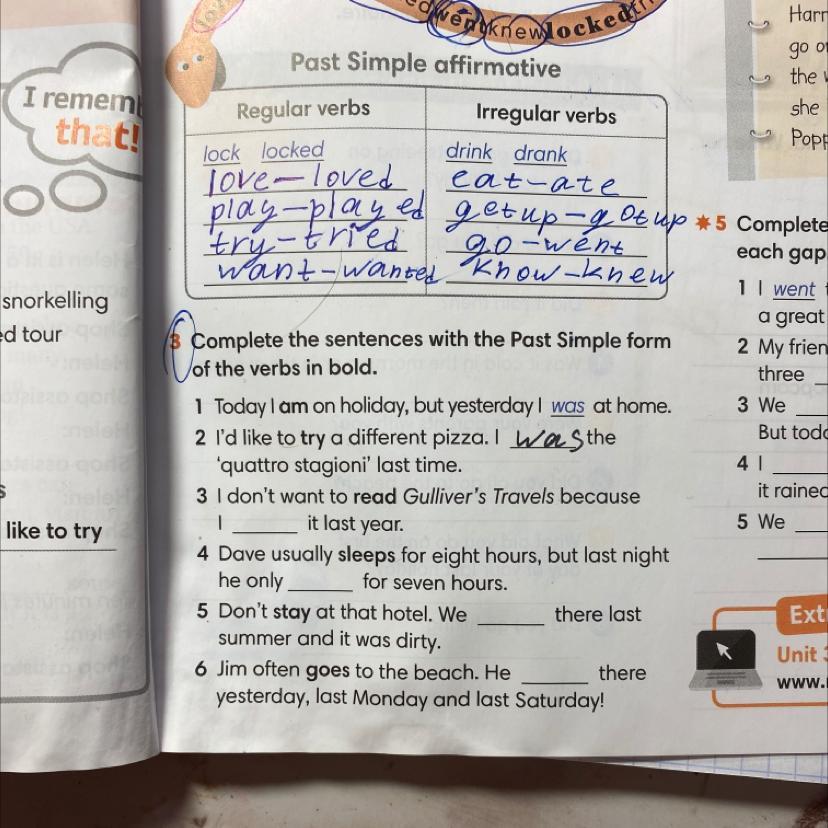 love
wentknewlocked
I rememb
that!
snorkelling
ed tour
like to try
Past Simple affirmative
Regular verbs Irregular verbs
lock locked drink drank
love-loved eat-ate
play-played getup-gotup
try-tried go-went
want-wanted know-knew
3 Complete the sentences with the Past Simple form
of the verbs in bold.
1 Today I am on holiday, but yesterday I was at home.
2 I'd like to try a different pizza. I was the
'quattro stagioni' last time.
3 I don't want to read Gulliver's Travels because
I ______ it last year.
4 Dave usually sleeps for eight hours, but last night
he only ______ for seven hours.
5 Don't stay at that hotel. We ______ there last
summer and it was dirty.
6 Jim often goes to the beach. He ______ there
yesterday, last Monday and last Saturday!
Harr
go o
the
she
Popp
5 Complete
each gap
1 I went
a great
2 My frien
three
3 We
But toda
4 I
it rained
5 We
Ext
Unit 3
www.